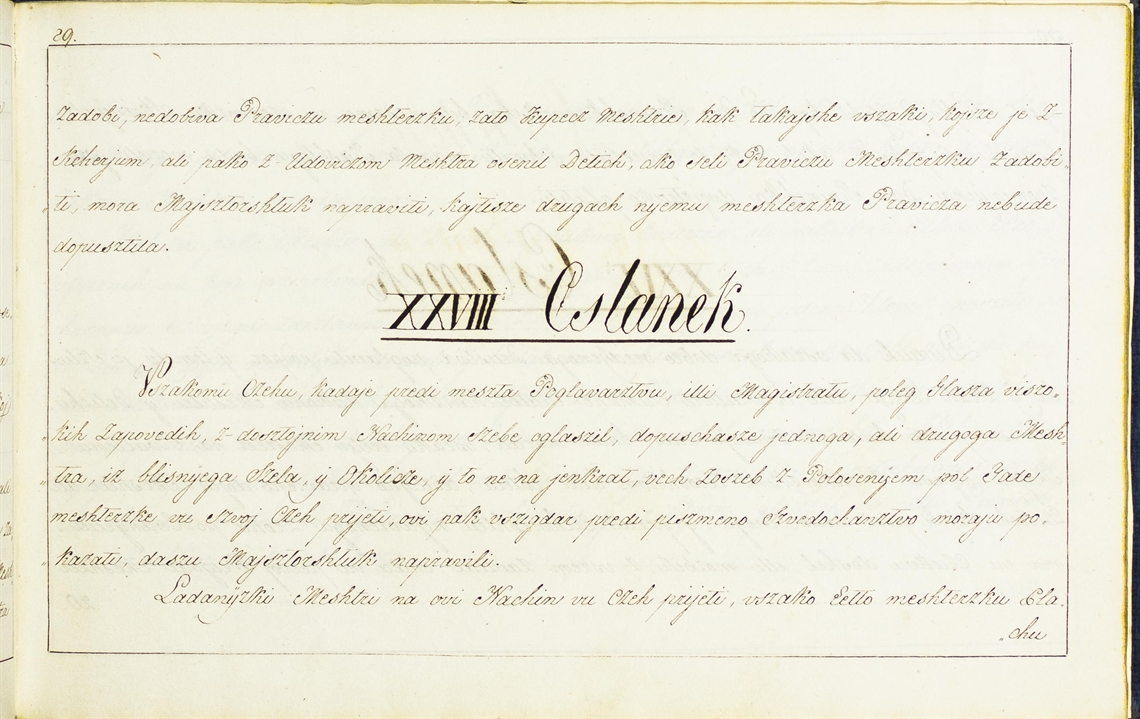 29.
zadobi, nedobiva Praviczu meshterzku, zato Kupecz Meshtrie, kak takajshe vszaki, kojsze je Z-
Kcherjum, ali pako Z-Udoviczom Meshtra osenil Detich, ako seli Praviczu Meshterzku Zadobi-
„ti, mora Majsztorshtuk napraviti, kajtisze drugach njemu meshterzka Pravicza nebude
dopusztita.
XXVIII Cslanek.
Vszakomu Czehu, kadaje predi meszta Poglavarztvu, illi Magistratu, poleg Glasza viszo-
„kih Zapovedih, Z-dosztojnim Nachinom szebe oglaszil, dopuschasze jednoga, ali drugoga Mesh-
„tra, iz blisnjega Szela, ÿ Okolicze, ÿ to ne na jenkrat, vech Zoszeb Z-Polosenÿem pol Taxe
meshterzke vu szvoj Czeh prijeti, ovi pak vszigdar predi piszmeno Szvedochanztvo moraju po-
„kazati, daszu Majsztorshtuk napravili.
Ladanÿzki Meshtri na ovi Nachin vu Czeh prijeti, vszako Letto meshterzku Pla-
„chu